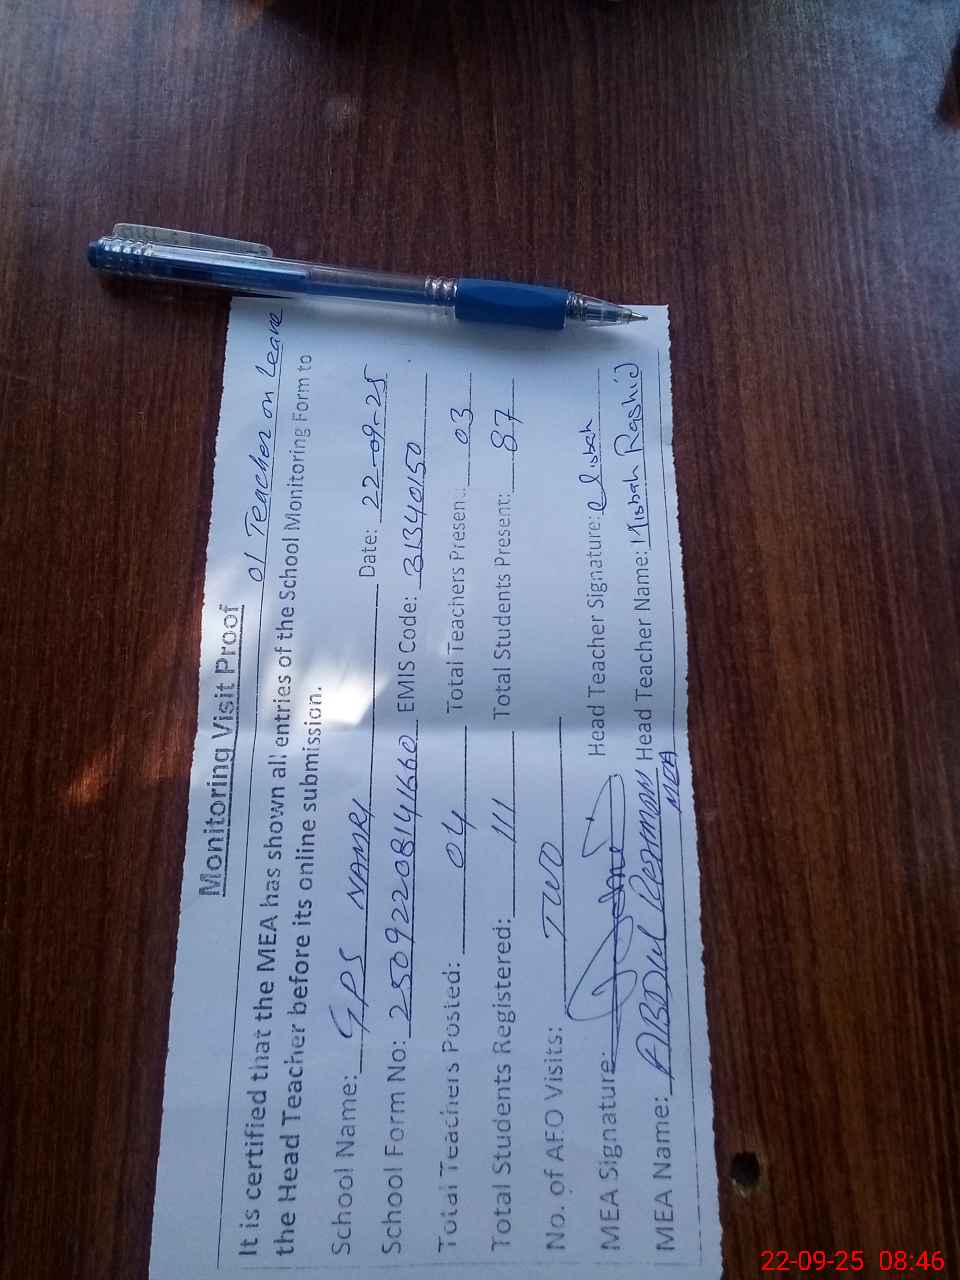 Monitoring Visit Proof
01 Teacher on Leave
It is certified that the MEA has shown all entries of the School Monitoring Form to
the Head Teacher before its online submission.
School Name: GPS NAMRI Date: 22-09-25
School Form No: 250922208141660 EMIS Code: 31340150
Total Teachers Posted: 04 Total Teachers Present: 03
Total Students Registered: 111 Total Students Present: 87
No. of AEO Visits: TWO
MEA Signature: Head Teacher Signature: Misbah
MEA Name: ABDUL REHMAN MEA Head Teacher Name: Misbah Rashid
22-09-25 08:46